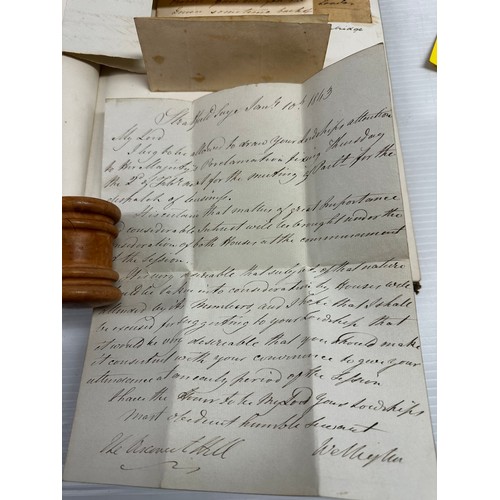 down some time back
London
Jany 10th 1843
My Lord
I beg to be allowed to draw your Lordship's attention
to Her Majesty's Proclamation fixing Thursday
the 2d of Febr next for the meeting of Parlt for the
despatch of business.
It is certain that matters of great Importance
and considerable Interest will be brought under the
consideration of both Houses at the commencement
of the Session.
It is very desirable that subjects of that nature
should be taken into consideration by Houses well
attended by its Members, and I hope that I shall
be excused for suggesting to your Lordship that
it would be very desireable that you should make
it consistent with your convenience to give your
attendance at an early period of the Session
I have the Honor to be My Lord Your Lordships
most obedient humble servant
The Viscount Hill Wellington